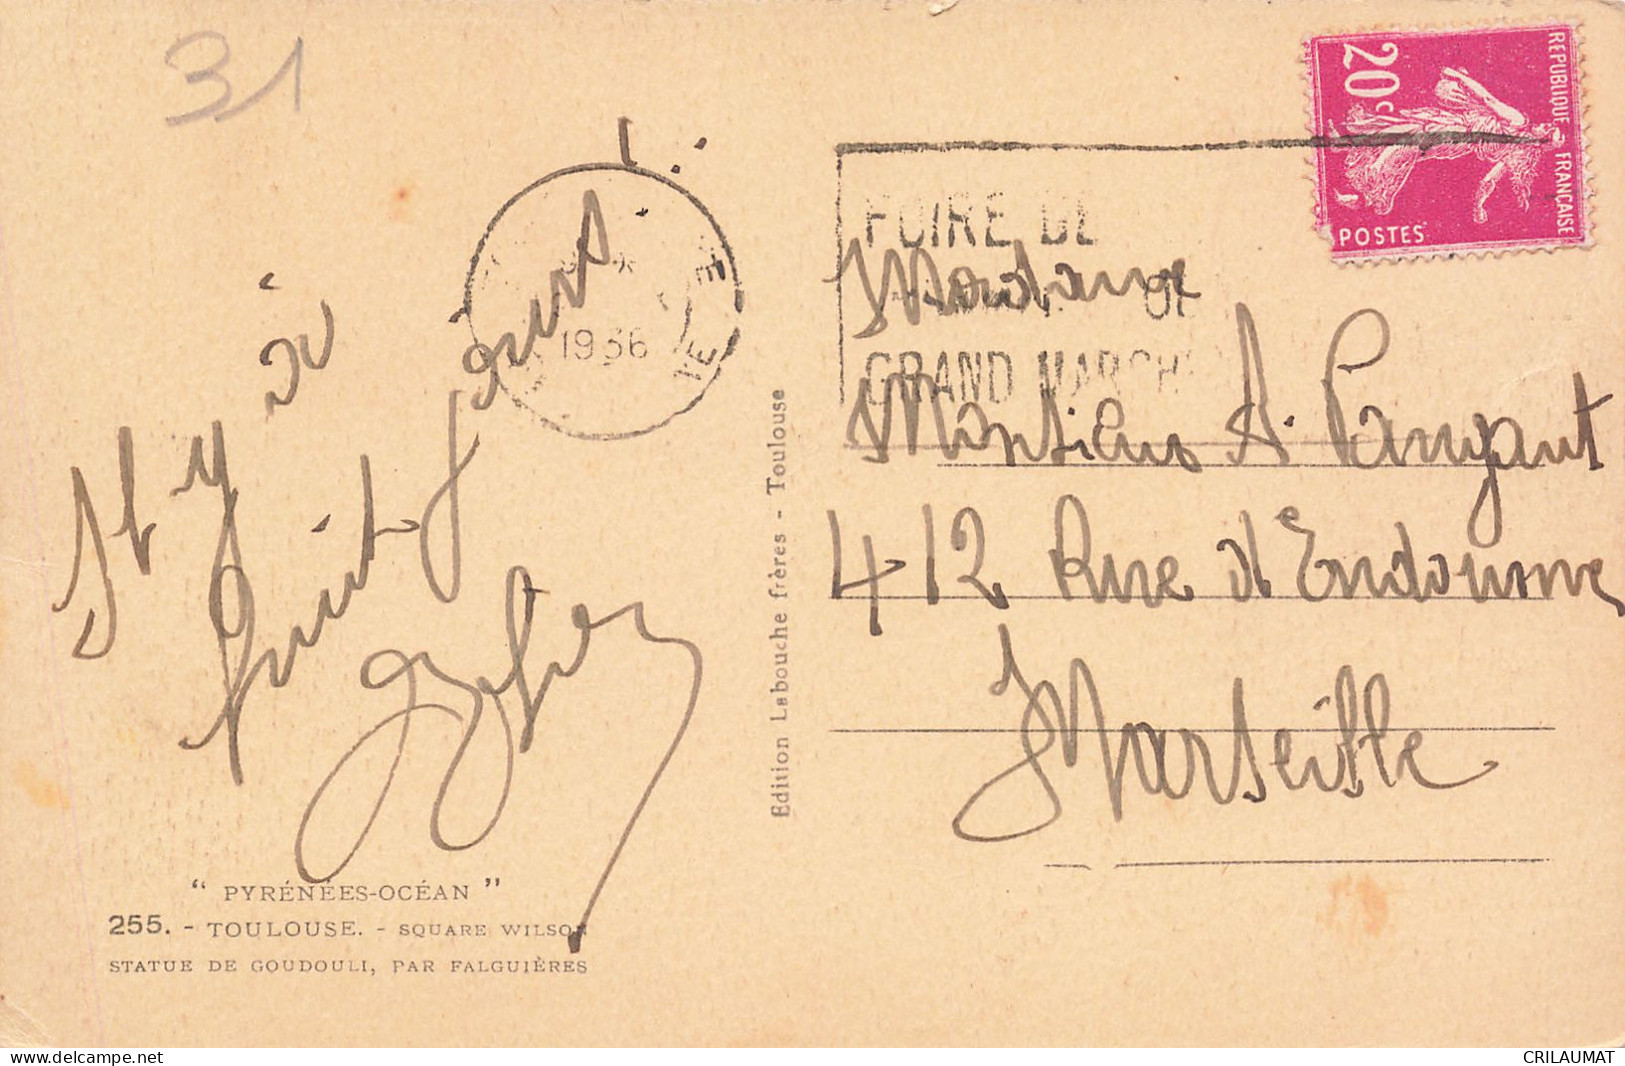 31
20c
REPUBLIQUE FRANÇAISE
POSTES
FOIRE DE
GRAND MARCH
1936
Il y a
huit jours !...
Madame
Monsieur A. Pangaut
412 Rue d'Endoume
Marseille
Edition Labouche frères - Toulouse
" PYRÉNÉES-OCÉAN "
255. - TOULOUSE. - SQUARE WILSON
STATUE DE GOUDOULI, PAR FALGUIÈRES
delcampe.net
CRILAUMAT